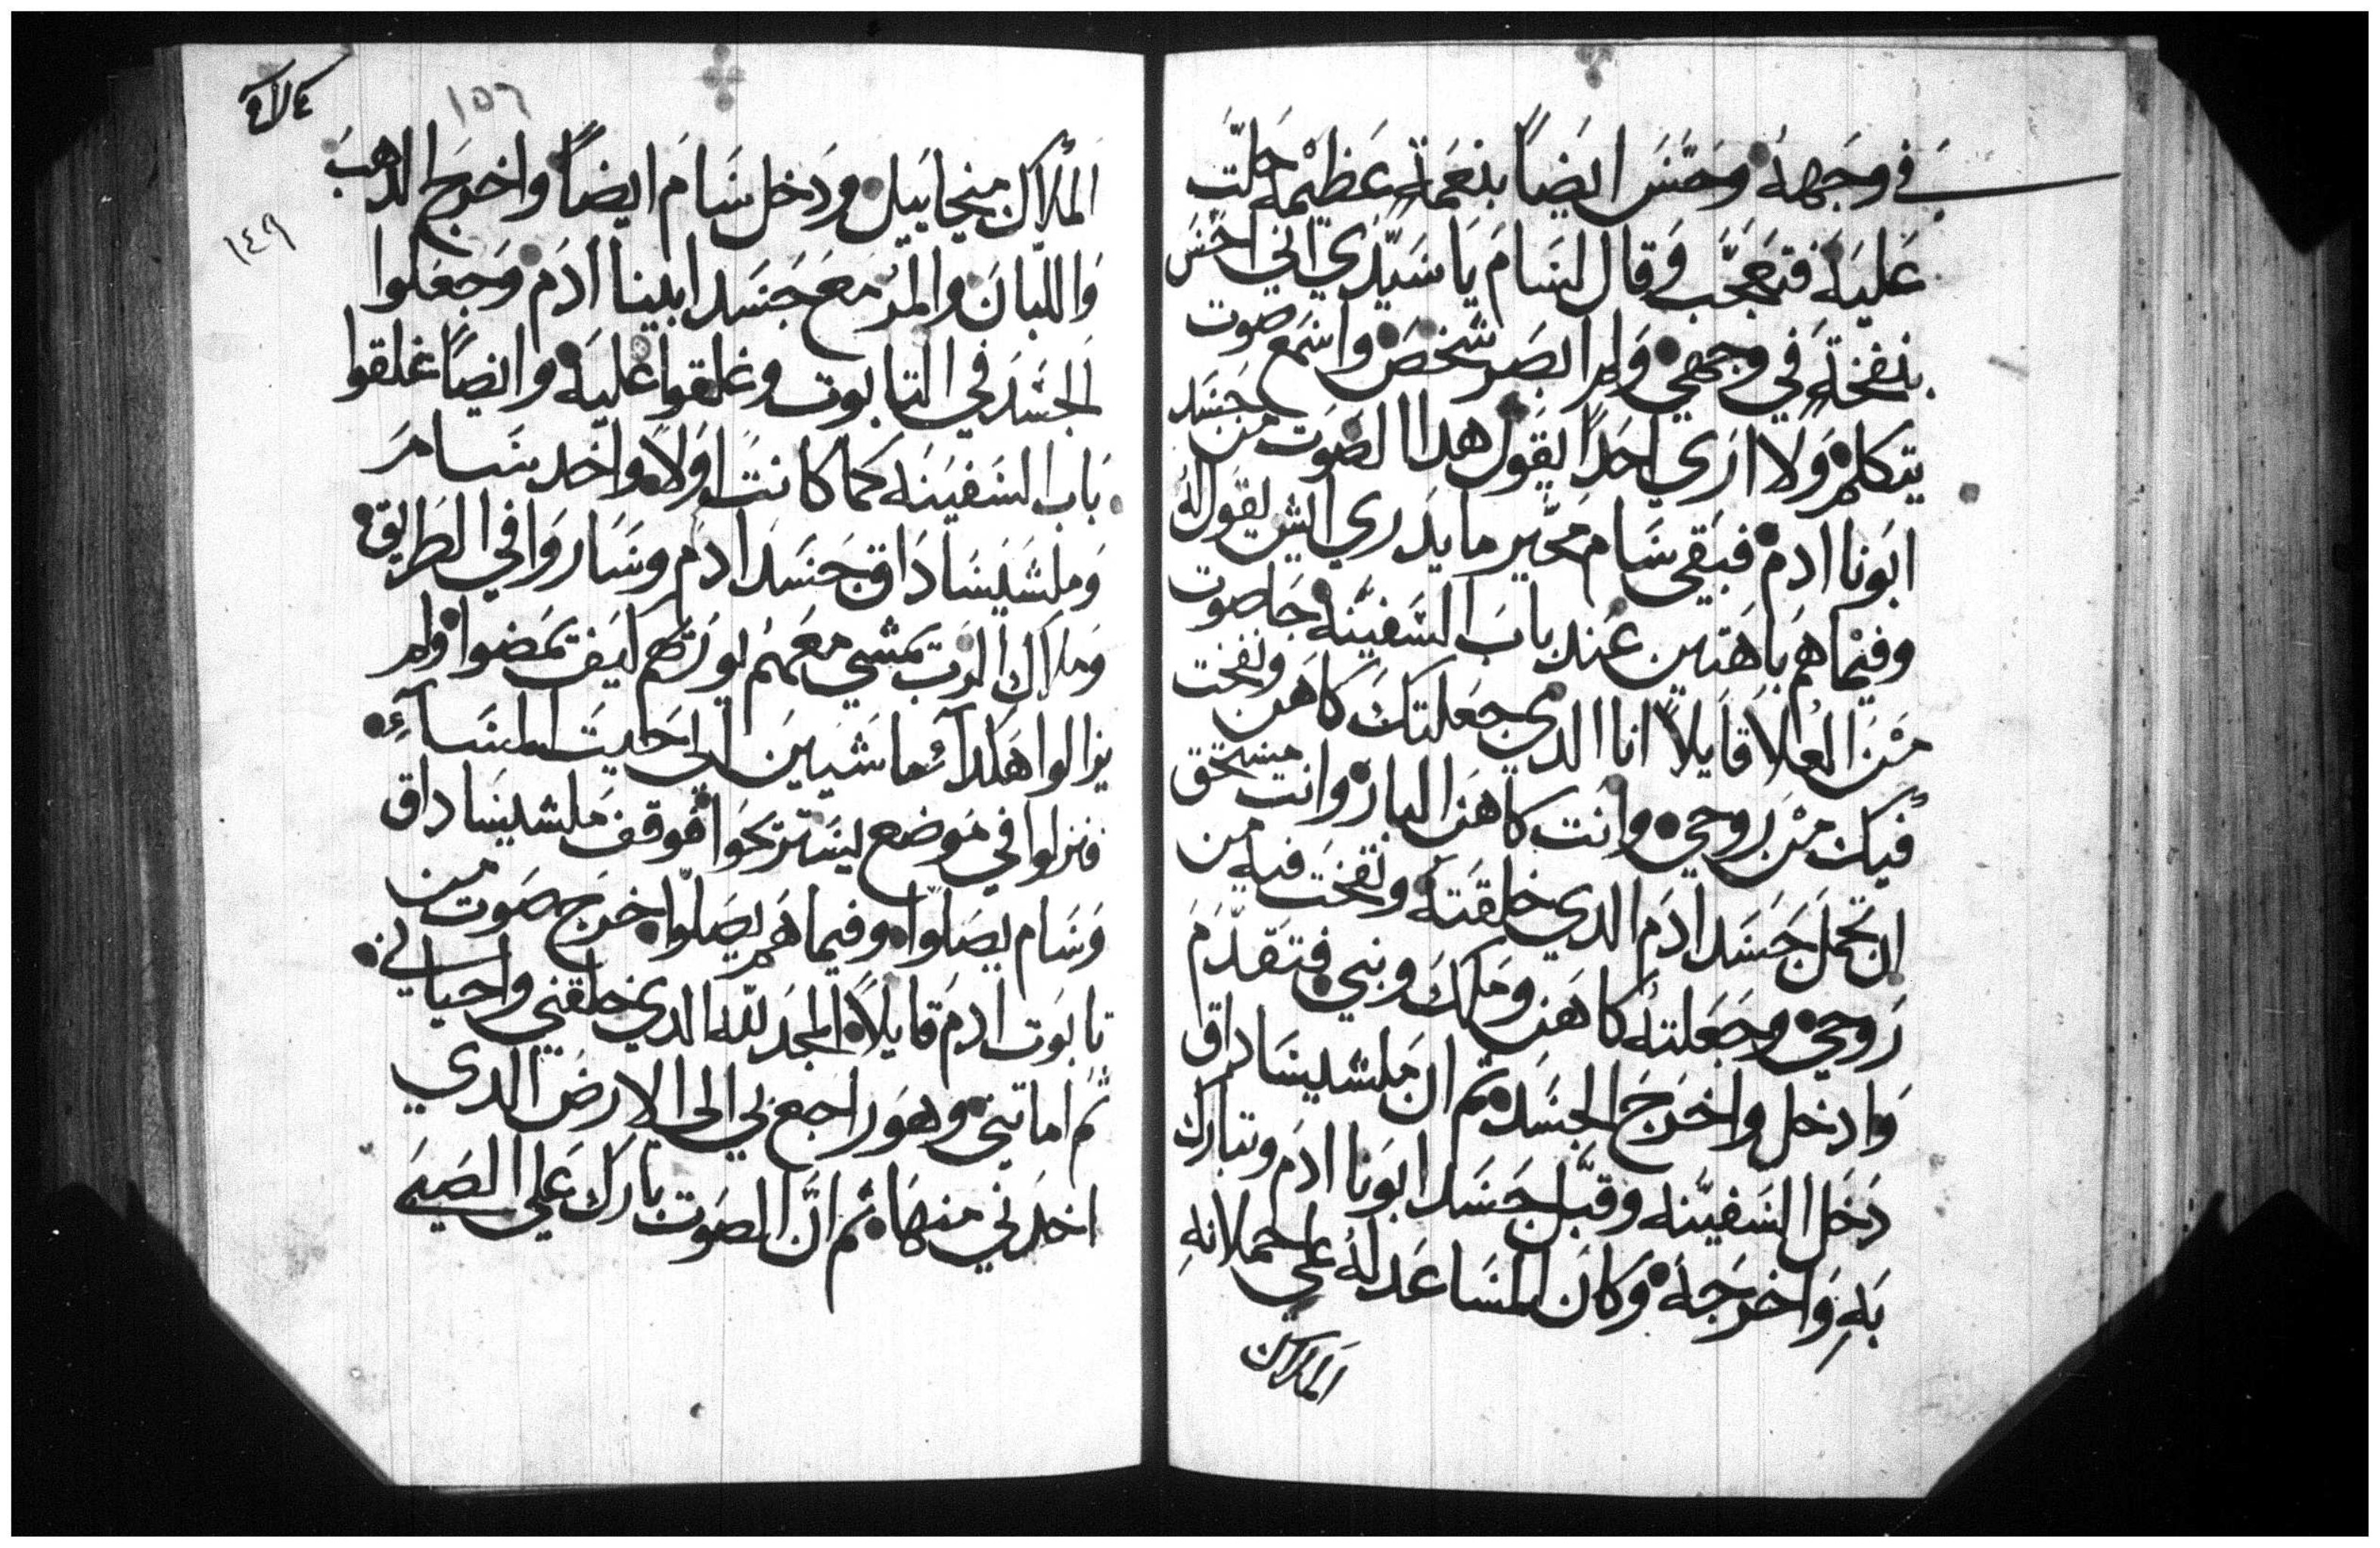 في وجهه وحسَّ ايضاً بنعمة عظيمة حلّت
عليه فتعجّب وقال لسام يا سيّدي اني احسّ
بنفخة في وجهي ولم ابصر شخص واسمع صوت
يتكلم ولا اري احداً يقول هدا الصوت من جسد
ابونا ادم فبقي سام محيّر ما يدري ايش يقول له
وفيما هم باهتين عند باب السفينه جا صوت
من العلا قايلاً انا الدي جعلتك كاهن ونفخت
فيك من روحي وانت كاهن البار وانت مستحق
ان تحمل جسد ادم الدي خلقته ونفخت فيه من
روحي وجعلته كاهن وملك ونبي فتقدّم
وادخل واخرج الجسد ثم ان ملشيساداق
دخل السفينه وقبّل جسد ابونا ادم وتبارك
به واخرجه وكان المساعد له علي احملانه
الملاك
١٥٦
١٤٩
الملاك ميخاييل ودخل سام ايضاً واخرج الدهب
واللبان والمر مع جسد ابينا ادم وجعلوا
الجسد في التابوت وغلقوا عليه وايضاً غلقوا
باب السفينه كما كانت اولاً واخد سام
وملشيساداق جسد ادم وساروا في الطريق
وملاك الرب يمشي معهم يوريهم كيف يمضوا ولم
يزالوا هكدا ماشيين الي حيت المساء
فنزلوا في موضع ليستريحوا فوقف ملشيساداق
وسام يصلوا وفيما هم يصلوا خرج صوت من
تابوت ادم قايلاً المجد لله الدي خلقني واحياني
ثم اماتني وهو راجع بي الي الارض الدي
اخدني منها ثم انّ الصوت بارك علي الصبي